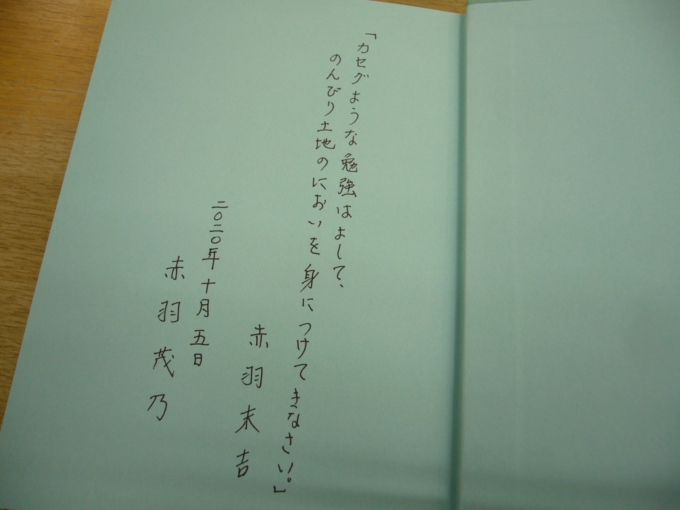 「カセグような勉強はよして、
のんびり土地のにおいを身につけてきなさい。」
赤羽末吉
二〇二〇年十月五日
赤羽茂乃